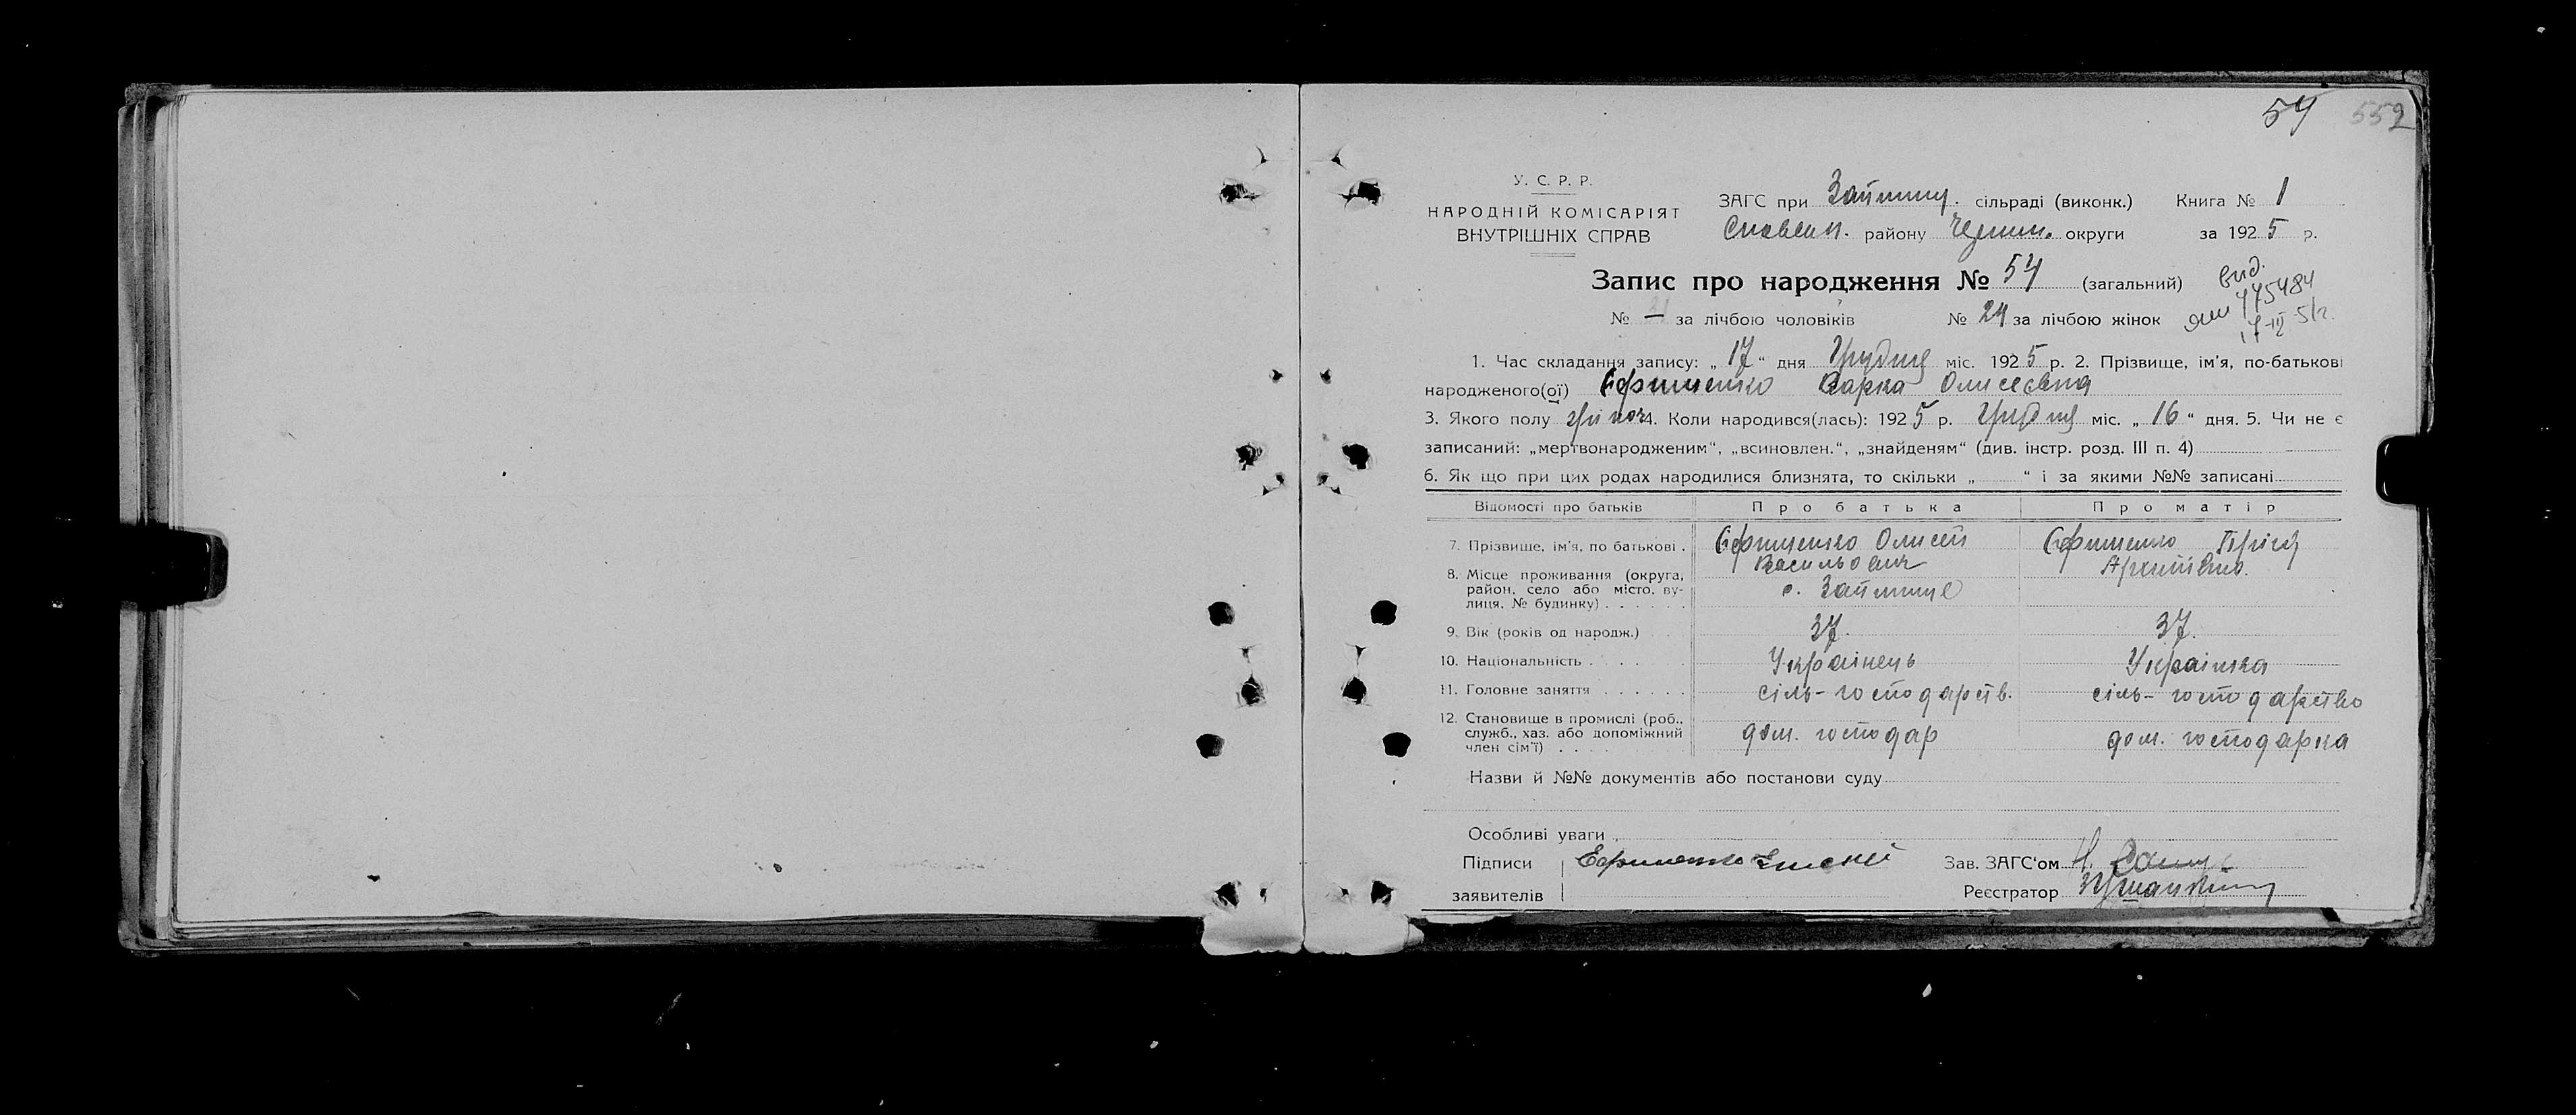 57 552
У. С. Р. Р.
НАРОДНІЙ КОМІСАРІЯТ
ВНУТРІШНІХ СПРАВ
ЗАГС при Займищ. сільраді (виконк.) Книга № 1
Сновськ. району Черниг. округи за 1925 р.
Запис про народження № 57 (загальний)
вид.
№ — за лічбою чоловіків № 24 за лічбою жінок
1. Час складання запису: „17“ дня Грудня міс. 1925 р. 2. Прізвище, ім'я, по-батькові
народженого(ої) Єфименко Варка Олисеєвна
3. Якого полу жіноч. 4. Коли народився(лась): 1925 р. Грудня міс. „16“ дня. 5. Чи не є
записаний: „мертвонародженим“, „всиновлен.“, „знайденям“ (див. інстр. розд. III п. 4)
6. Як що при цих родах народилися близнята, то скільки „ “ і за якими №№ записані
Відомості про батьків Про батька Про матір
7. Прізвище, ім'я, по батькові . Єфименко Олисей Васильович Єфименко
8. Місце проживання (округа, район, село або місто, вулиця, № будинку) . . . . . . с. Займище
9. Вік (років од народж.) 37. 37.
10. Національність . . . . Українець Українка
11. Головне заняття . . . . . . сіль-господарств. сіль-господарство
12. Становище в промислі (роб., служб., хаз. або допоміжний член сім'ї) . . . . дом. господар дом. господарка
Назви й №№ документів або постанови суду
Особливі уваги
Підписи Ефименко Зав. ЗАГС'ом
заявителів Реєстратор